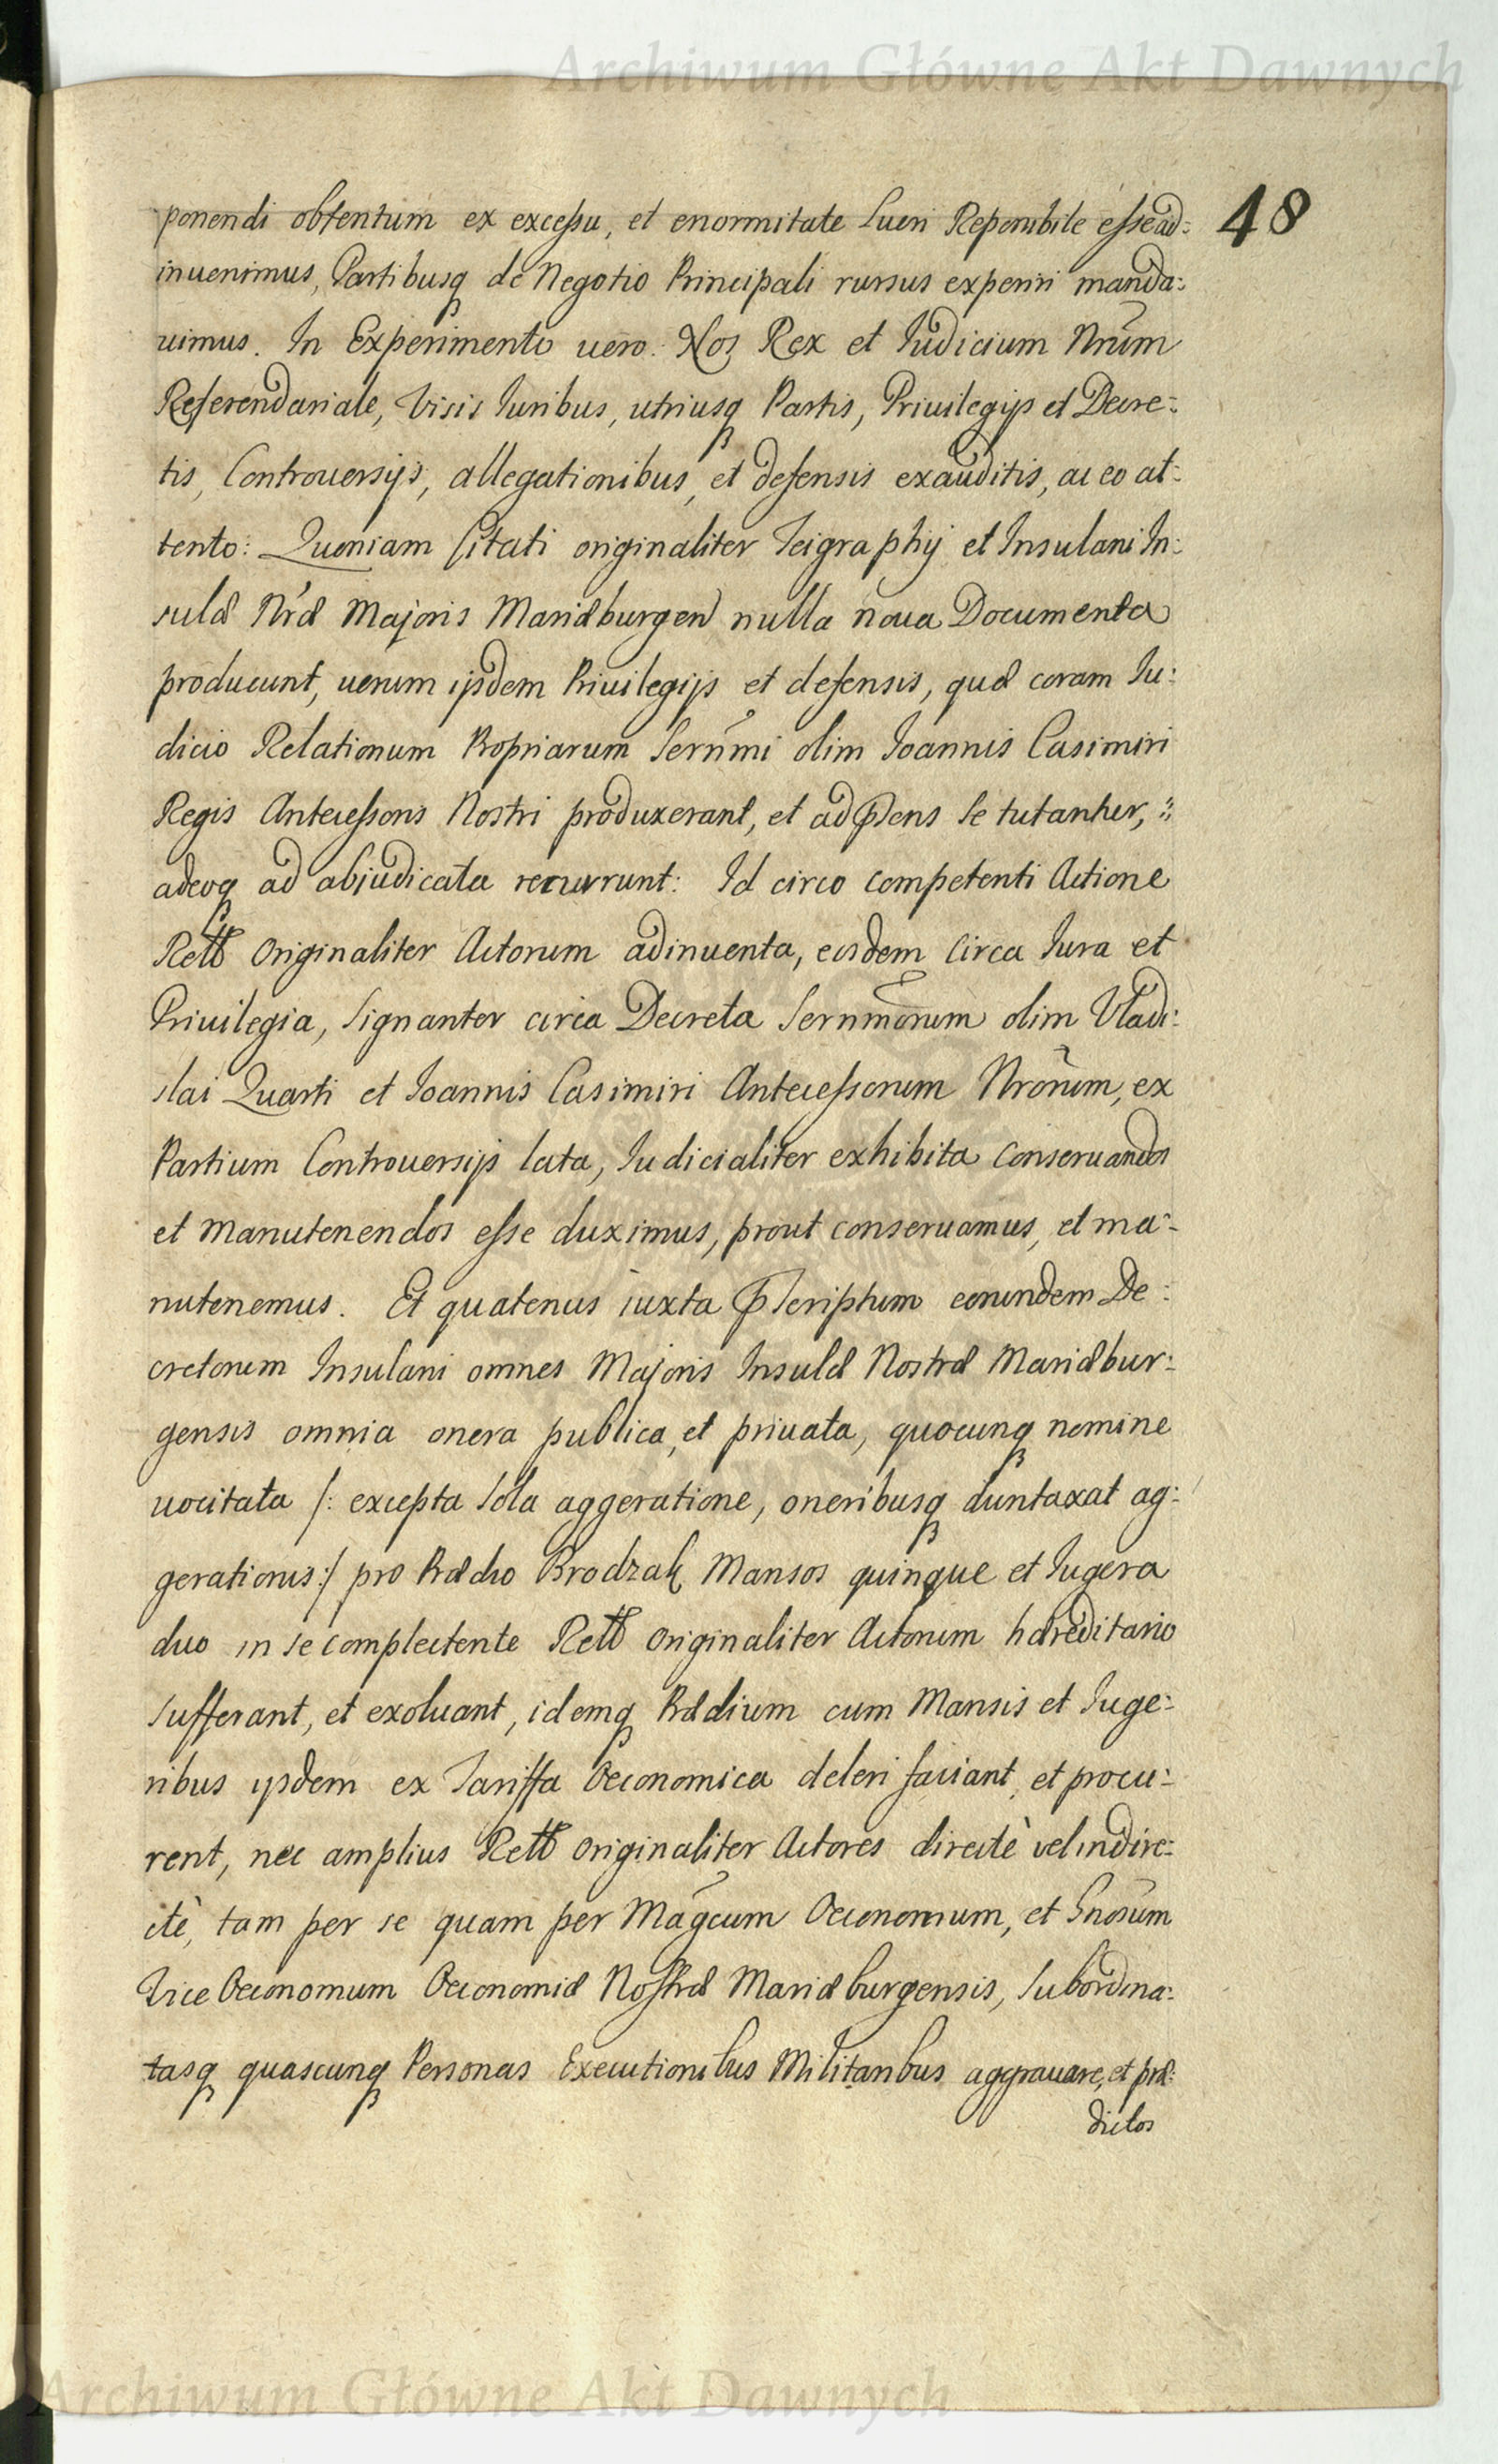 Archiwum Główne Akt Dawnych
48
ponendi obtentum ex excessu, et enormitate Lucri Reponibile esse ad:
inuenimus, Partibusq de Negotio Principali rursus experiri manda:
uimus. In Experimento uero. Nos Rex et Iudicium Nrum
Referendariale, Visis Iuribus, utriusq Partis, Priuilegijs et Decre:
tis, Controuersijs, allegationibus, et defensis exauditis, ac eo at:
tento: Quoniam Citati originaliter Teigraphij et Insulani In:
sulæ Nræ Majoris Mariæburgen nulla noua Documenta
producunt, uerum ijsdem Priuilegijs et defensis, quæ coram Iu:
dicio Relationum Propriarum Sernmi olim Ioannis Casimiri
Regis Antecessoris Nostri produxerant, et ad pñsens se tutantur,
adeoq ad abiudicata recurrunt: Id circo competenti Actione
Rettt Originaliter Actorum adinuenta, eosdem circa Iura et
Priuilegia, signanter circa Decreta Sernmorum olim Vladi:
slai Quarti et Ioannis Casimiri Antecessorum Nrorum, ex
Partium Controuersijs lata, Iudicialiter exhibita conseruandos
et manutenendos esse duximus, prout conseruamus, et ma:
nutenemus. Et quatenus iuxta pscriptum eorundem De:
cretorum Insulani omnes Majoris Insulæ Nostræ Mariæbur:
gensis omnia onera publica, et priuata, quocunq nomine
uocitata /: excepta sola aggeratione, oneribusq duntaxat ag:
gerationis :/ pro Prædio Brodzak Mansos quinque et Iugera
duo in se complectente Rettt originaliter Actorum hæreditario
sufferant, et exoluant, idemq Prædium cum Mansis et Iuge:
ribus ijsdem ex Tariffa Oeconomica deleri faciant, et procu:
rent, nec amplius Rettt originaliter Actores directè vel indire:
ctè, tam per se quam per Magcum Oeconomum, et Gnosum
Vice Oeconomum Oeconomiæ Nostræ Mariæburgensis, subordina:
tasq quascunq Personas Executionibus Militaribus aggrauare, et præ:
dictos
Archiwum Główne Akt Dawnych